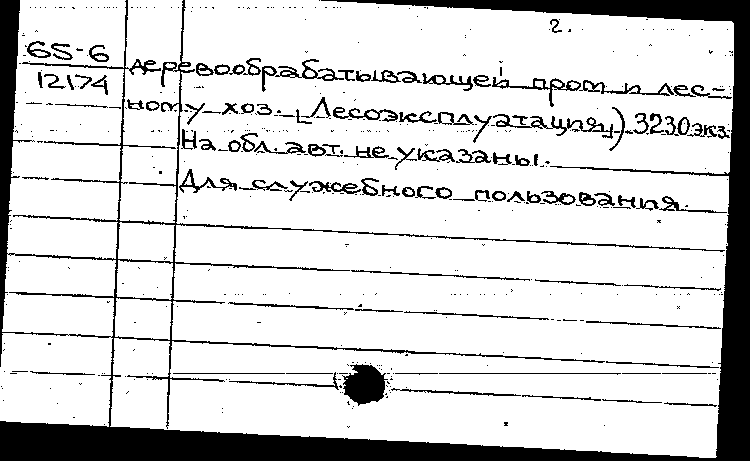 2.
65-6
12174
деревообрабатывающей пром и лес-
ному хоз. „Лесоэксплуатация„) 3230 экз.
На обл. авт. не указаны.
Для служебного пользования.